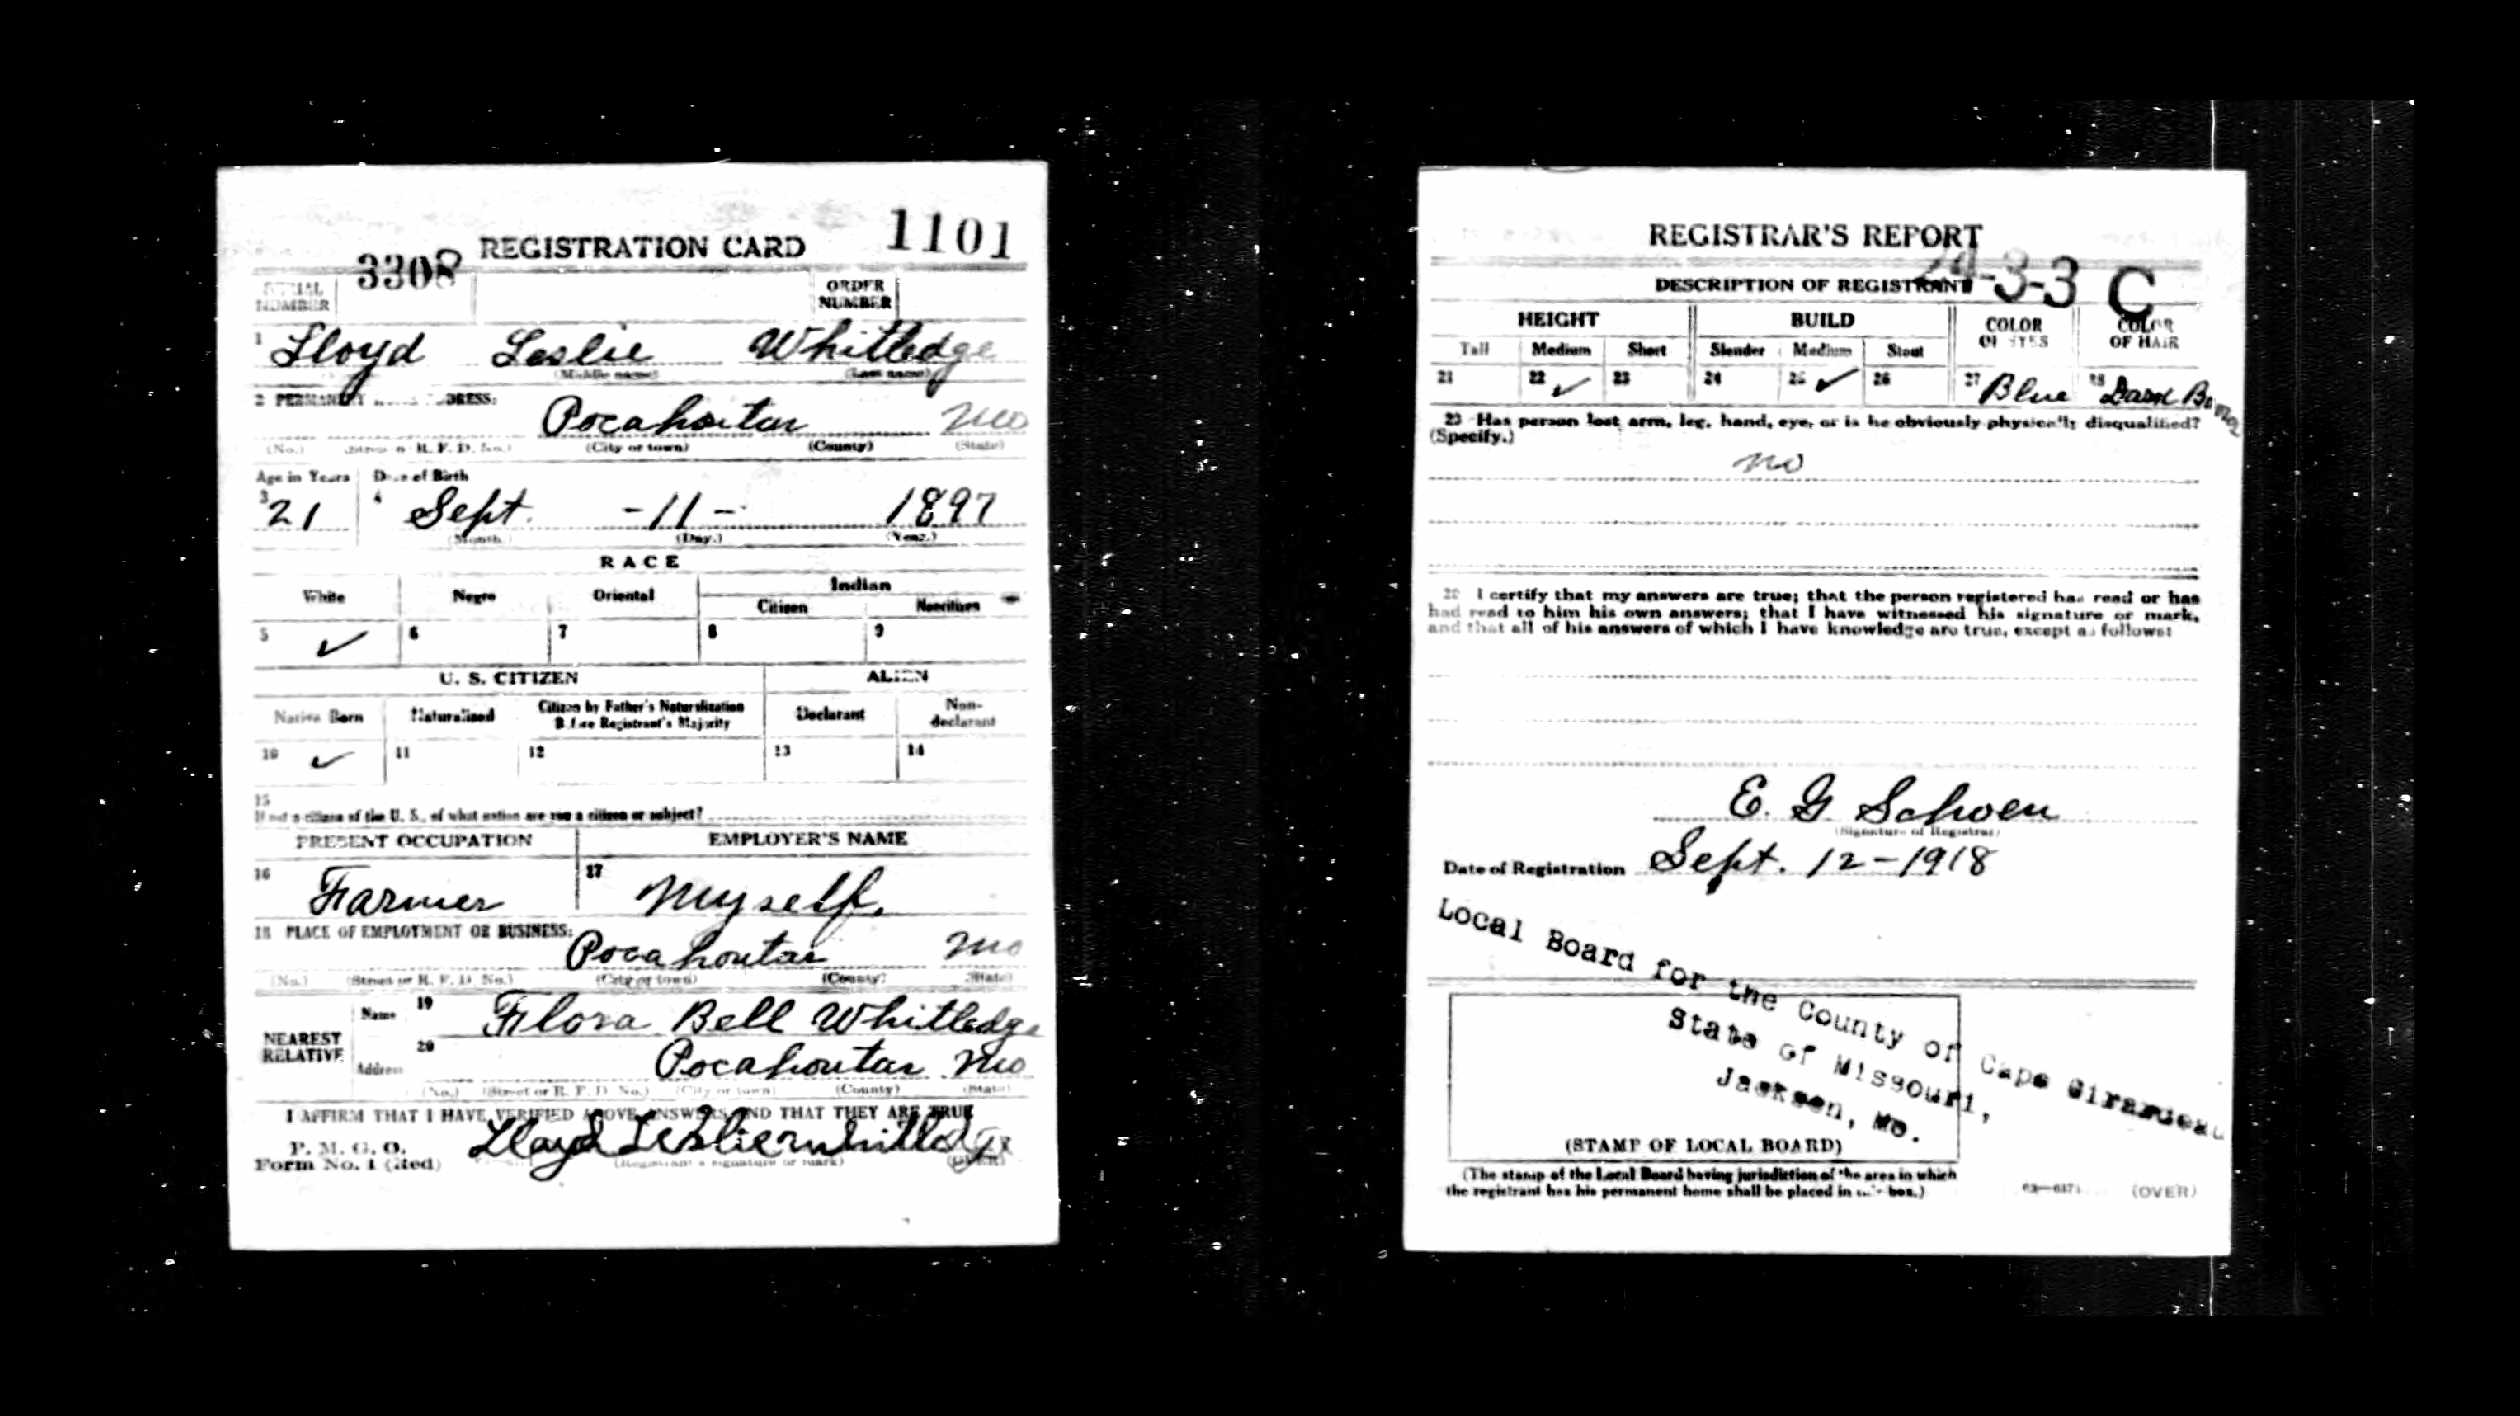 REGISTRATION CARD 1101
SERIAL NUMBER 3308 ORDER NUMBER
1 Lloyd Leslie Whitledge
(Middle name) (Last name)
2 PERMANENT HOME ADDRESS:
Pocahontas Mo
(No.) (Street or R. F. D. No.) (City or town) (County) (State)
Age in Years Date of Birth
3 21 4 Sept. -11- 1897
(Month.) (Day.) (Year.)
RACE
White Negro Oriental Indian
Citizen Noncitizen
5 ✓ 6 7 8 9
U. S. CITIZEN ALIEN
Native Born Naturalized Citizen by Father's Naturalization Before Registrant's Majority Declarant Non-declarant
10 ✓ 11 12 13 14
15
If not a citizen of the U. S., of what nation are you a citizen or subject?
PRESENT OCCUPATION EMPLOYER'S NAME
16 Farmer 17 Myself.
18 PLACE OF EMPLOYMENT OR BUSINESS:
Pocahontas Mo
(No.) (Street or R. F. D. No.) (City or town) (County) (State)
NEAREST RELATIVE
Name 19 Flora Bell Whitledge
Address 20 Pocahontas Mo
(No.) (Street or R. F. D. No.) (City or town) (County) (State)
I AFFIRM THAT I HAVE VERIFIED ABOVE ANSWERS AND THAT THEY ARE TRUE
P. M. G. O.
Form No. 1 (Red) Lloyd Leslie Whitledge
(Registrant's signature or mark) (OVER)
REGISTRAR'S REPORT
24-3-3 C
DESCRIPTION OF REGISTRANT
HEIGHT BUILD COLOR OF EYES COLOR OF HAIR
Tall Medium Short Slender Medium Stout
21 22 ✓ 23 24 25 ✓ 26 27 Blue 28
29 Has person lost arm, leg, hand, eye, or is he obviously physically disqualified?
(Specify.)
no
30 I certify that my answers are true; that the person registered has read or has
had read to him his own answers; that I have witnessed his signature or mark,
and that all of his answers of which I have knowledge are true, except as follows:
E. G. Schoen
(Signature of Registrar)
Date of Registration Sept. 12-1918
Local Board for the County of Cape Girardeau
State of Missouri,
Jackson, Mo.
(STAMP OF LOCAL BOARD)
(The stamp of the Local Board having jurisdiction of the area in which
the registrant has his permanent home shall be placed in this box.)
(OVER)